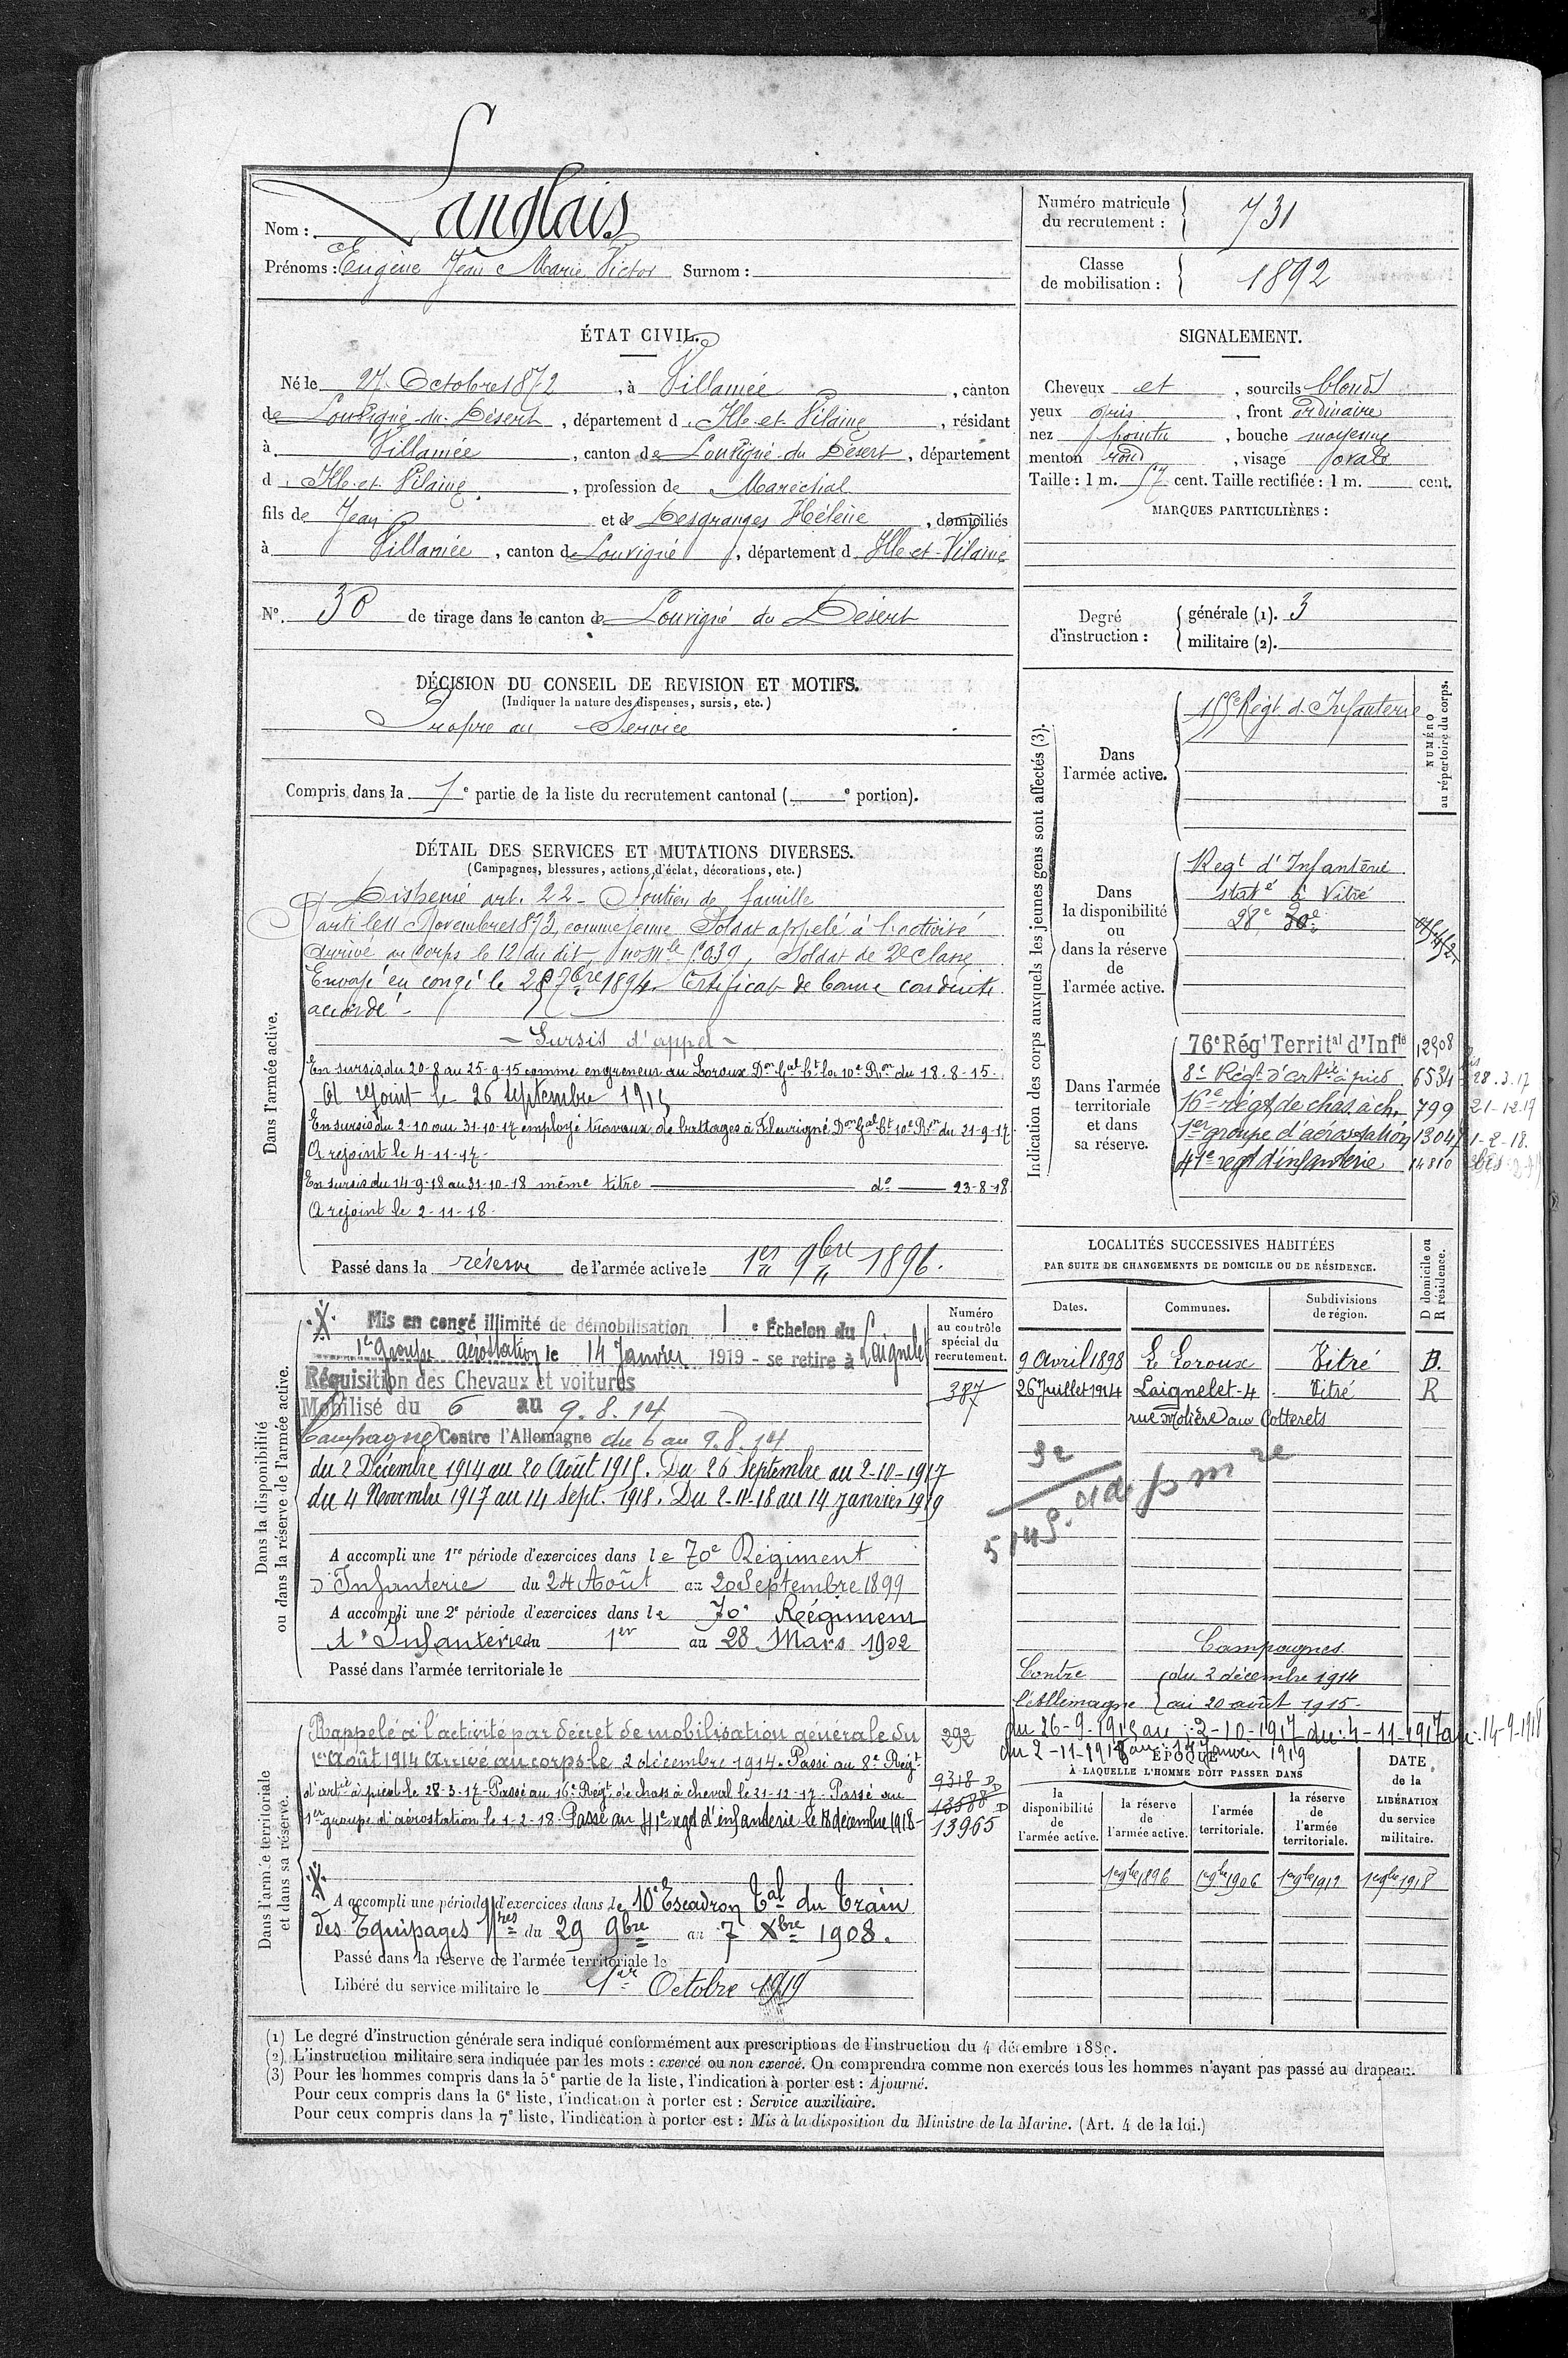 Nom : Langlais
Prénoms : Eugène Jean Marie Victor Surnom :
Numéro matricule du recrutement : 731
Classe de mobilisation : 1892
ÉTAT CIVIL.
Né le 27 Octobre 1872, à Villamée, canton
de Louvigné-du-Désert, département d Ille-et-Vilaine, résidant
à Villamée, canton de Louvigné-du-Désert, département
d Ille-et-Vilaine, profession de Maréchal
fils de Jean et de Desgranges Hélène, domiciliés
à Villamée, canton de Louvigné, département d Ille-et-Vilaine
N°. 30 de tirage dans le canton de Louvigné du Désert
SIGNALEMENT.
Cheveux et, sourcils blonds
yeux gris, front ordinaire
nez pointu, bouche moyenne
menton rond, visage ovale
Taille : 1 m. 57 cent. Taille rectifiée : 1 m. cent.
MARQUES PARTICULIÈRES :
Degré d'instruction :
générale (1). 3
militaire (2).
DÉCISION DU CONSEIL DE REVISION ET MOTIFS.
(Indiquer la nature des dispenses, sursis, etc.)
Propre au Service
Compris dans la 1e partie de la liste du recrutement cantonal ( e portion).
DÉTAIL DES SERVICES ET MUTATIONS DIVERSES.
(Campagnes, blessures, actions d'éclat, décorations, etc.)
Dans l'armée active.
Dispensé art. 22 - Soutien de famille
Parti le 11 Novembre 1893, comme jeune Soldat appelé à l'activité
Arrivé au Corps le 12 du dit, no mle 5039, Soldat de 2e classe
Envoyé en congé le 28 7bre 1894. Certificat de bonne conduite
accordé.
- Sursis d'appel -
En sursis du 20-8 au 25-9-15 comme engreneur au Loroux Don Gal Ct la 10e Ron du 18.8-15.
A rejoint le 26 septembre 1915
En sursis du 2-10 au 31-10-17 employé travaux de battages à Fleurigné Don Gal Ct 10e Ron du 21-9-17
A rejoint le 4-11-17-
En sursis du 14-9-18 au 31-10-18 même titre do 23-8-18
A rejoint le 2-11-18-
Passé dans la réserve de l'armée active le 1er 9bre 1896.
Indication des corps auxquels les jeunes gens sont affectés (3).
NUMÉRO au répertoire du corps.
Dans l'armée active.
Régt d'Infanterie
Dans la disponibilité ou dans la réserve de l'armée active.
Regt d'Infanterie
staté à Vitré
28e
Dans l'armée territoriale et dans sa réserve.
76e Régt Territal d'Infie 12908
8e Régt d'artie à pied 6534 28.3.17
16e régt de chas. à ch. 799 21-12-17
1er groupe d'aérostation 13047 1-2-18.
41e regt d'infanterie 14810
LOCALITÉS SUCCESSIVES HABITÉES
PAR SUITE DE CHANGEMENTS DE DOMICILE OU DE RÉSIDENCE.
Dates. Communes. Subdivisions de région. D domicile ou R résidence.
9 Avril 1898 Le Loroux Vitré D.
26 Juillet 1914 Laignelet-4 Vitré R
rue Molière aux Cotterets
Dans la disponibilité ou dans la réserve de l'armée active.
Mis en congé illimité de démobilisation 1e Échelon du
1er Groupe aérostation le 14 Janvier 1919 - se retire à Laignelet
Réquisition des Chevaux et voitures
Mobilisé du 6 au 9.8.14
Campagne Contre l'Allemagne du 6 au 9.8.14
du 2 Décembre 1914 au 20 Août 1915. Du 26 Septembre au 2-10-1917
du 4 Novembre 1917 au 14 Sept. 1918. Du 2-11-18 au 14 janvier 1919
Numéro au contrôle spécial du recrutement.
387
A accompli une 1re période d'exercices dans le 70e Régiment
d'Infanterie du 24 Août au 20 Septembre 1899
A accompli une 2e période d'exercices dans le 70e Régiment
d'Infanterie du 1er au 28 Mars 1902
Passé dans l'armée territoriale le
Campagnes
Contre l'Allemagne
du 2 décembre 1914
au 20 août 1915-
du 26-9-1915 au 2-10-1917 du 4-11-1917 au 14-9-1918
du 2-11-1918 au 14 Janvier 1919
Dans l'armée territoriale et dans sa réserve.
Rappelé à l'activité par décret de mobilisation générale du
1er Août 1914 Arrivé au corps le 2 décembre 1914. Passé au 8e Régt
d'artie à pied le 28-3-17 - Passé au 16e Régt de chass. à cheval le 21-12-17. Passé au
1er groupe d'aérostation le 1-2-18. Passé au 41e regt d'infanterie le 18 décembre 1918-
292
9318 D
13588 D
13965 D
A accompli une période d'exercices dans le 10e Escadron Tal du Train
des Equipages Mres du 29 9bre au 7 Xbre 1908.
Passé dans la réserve de l'armée territoriale le
Libéré du service militaire le 1er Octobre 1919
ÉPOQUE
À LAQUELLE L'HOMME DOIT PASSER DANS
la disponibilité de l'armée active. la réserve de l'armée active. l'armée territoriale. la réserve de l'armée territoriale.
DATE de la LIBÉRATION du service militaire.
1er 9bre 1896 1er 9bre 1906 1er 9bre 1912 1er 9bre 1918
(1) Le degré d'instruction générale sera indiqué conformément aux prescriptions de l'instruction du 4 décembre 1889.
(2) L'instruction militaire sera indiquée par les mots : exercé ou non exercé. On comprendra comme non exercés tous les hommes n'ayant pas passé au drapeau.
(3) Pour les hommes compris dans la 5e partie de la liste, l'indication à porter est : Ajourné.
Pour ceux compris dans la 6e liste, l'indication à porter est : Service auxiliaire.
Pour ceux compris dans la 7e liste, l'indication à porter est : Mis à la disposition du Ministre de la Marine. (Art. 4 de la loi.)